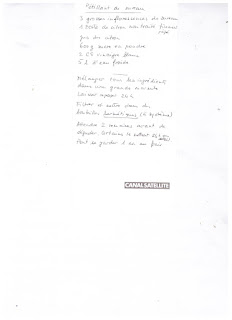 Pétillant au sureau
3 grosses inflorescences de sureau
1 zeste de citron non traité
jus du citron
600 g sucre en poudre
2 CS vinaigre blanc
5 L d'eau froide
Mélanger tous les ingrédients
dans une grande
Laisser reposer 24 h
Filtrer et mettre dans des
bouteilles hermétiques
Attendre 2 semaines avant de
déguster, certains le
Peut se garder 1 an au frais
CANALSATELLITE